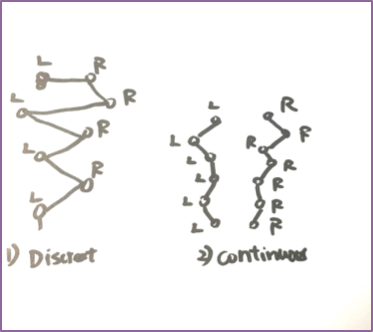 L R
R
L
R
L
R
L
1) Discret
L
L
L
L
L
L
R
R
R
R
R
R
R
2) Continuous